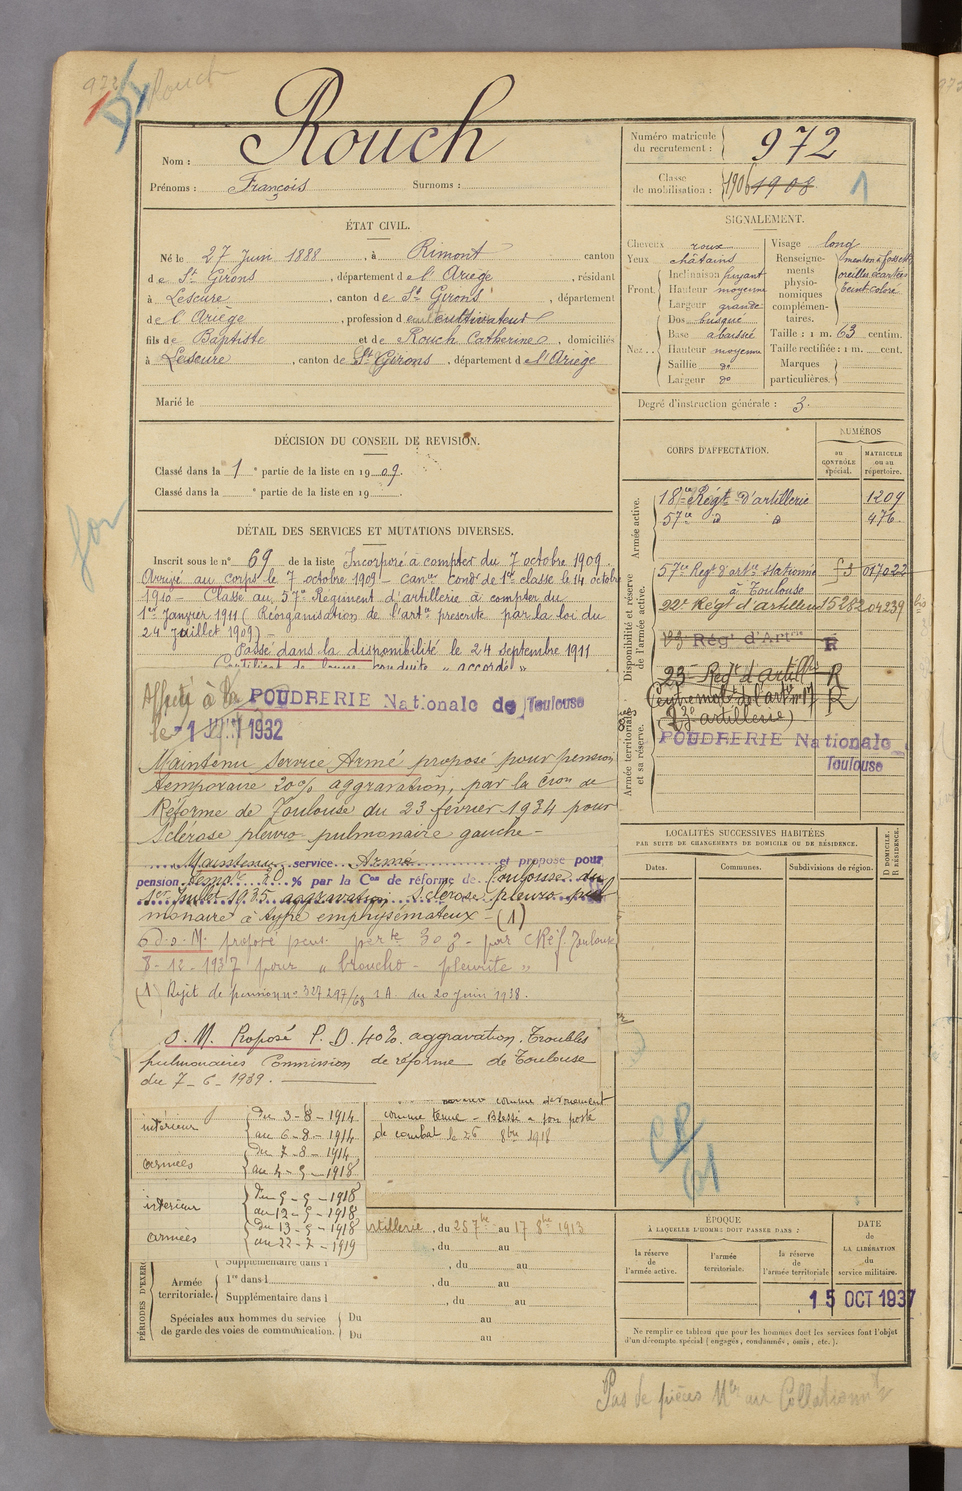 Rouch
Nom : Rouch
Prénoms : François Surnoms :
Numéro matricule du recrutement : 972
Classe de mobilisation : 1906 1908
1
ÉTAT CIVIL.
Né le 27 Juin 1888, à Rimont canton
de St Girons, département de l'Ariège, résidant
à Lescure, canton de St Girons, département
de l'Ariège, profession de cultivateur
fils de Baptiste et de Rouch Catherine, domiciliés
à Lescure, canton de St Girons, département de l'Ariège
Marié le
SIGNALEMENT.
Cheveux roux
Yeux châtains
Front. Inclinaison fuyant
Hauteur moyenne
Largeur grande
Nez. Dos busqué
Base abaissée
Hauteur moyenne
Saillie do
Largeur do
Visage long
Renseignements physionomiques complémentaires. menton à fossette
oreilles écartées
teint coloré
Taille : 1 m. 63 centim.
Taille rectifiée : 1 m. cent.
Marques particulières.
Degré d'instruction générale : 3.
DÉCISION DU CONSEIL DE REVISION.
Classé dans la 1e partie de la liste en 1909.
Classé dans la e partie de la liste en 19 .
DÉTAIL DES SERVICES ET MUTATIONS DIVERSES.
Inscrit sous le n° 69 de la liste Incorporé à compter du 7 octobre 1909.
Arrivé au corps le 7 octobre 1909 - canr condr de 1re classe le 14 octobre
1910 - Classé au 57e Régiment d'artillerie à compter du
1er Janvier 1911 (Réorganisation de l'artie prescrite par la loi du
24 Juillet 1909) -
Passé dans la disponibilité le 24 septembre 1911
Affecté à la POUDRERIE Nationale de Toulouse
le 1932
Maintenu Service Armé proposé pour pension
temporaire 20% aggravation, par la Cion de
Réforme de Toulouse du 23 février 1934 pour
Sclérose pleuro pulmonaire gauche -
Maintenu service Armé et proposé pour
pension temp re % par la Con de réforme de Toulouse du
1er Juillet 1935 aggravation Sclérose pleuro pul
monaire à type emphysémateux - (1)
proposé pens. perte 30% - par C Réf. Toulouse
8-12-1937 pour « broncho - pleurite »
(1) Rejet de pension no 327297/68 S.A. du 20 Juin 1938.
S. M. Proposé P. D. 40% aggravation. Troubles
pulmonaires Commission de réforme de Toulouse
du 7-6-1939.
comme dévouement
comme tenue - Blessé à son poste
de combat le 26 8bre 1918
intérieur du 3-8-1914
au 6-8-1914
armées du 7-8-1914
au 4-9-1918
intérieur du 5-9-1918
au 12-9-1918
armées du 13-9-1918
au 22-7-1919
artillerie, du 25 7bre au 17 8bre 1913
, du au
Supplémentaire dans l , du au
PÉRIODES D'EXERC
Armée territoriale. 1re dans l , du au
Supplémentaire dans l , du au
Spéciales aux hommes du service de garde des voies de communication. Du au
Du au
CORPS D'AFFECTATION.
NUMÉROS
au CONTRÔLE spécial.
MATRICULE ou au répertoire.
Armée active.
18e Régt d'artillerie 1209
57e d d 476
Disponibilité et réserve de l'armée active.
57e Regt d'artie Stationné à Toulouse 017022
22e Régt d'artillerie 15282 04239 bis
Régt d'Artrie R
23e Régt d'artillie R
Centre mobr de l'artie no 17 R
(23e artillerie)
Armée territoriale et sa réserve.
POUDRERIE Nationale
Toulouse
LOCALITÉS SUCCESSIVES HABITÉES
PAR SUITE DE CHANGEMENTS DE DOMICILE OU DE RÉSIDENCE.
Dates. Communes. Subdivisions de région. D DOMICILE. R RÉSIDENCE.
ÉPOQUE
À LAQUELLE L'HOMME DOIT PASSER DANS :
la réserve de l'armée active.
l'armée territoriale.
la réserve de l'armée territoriale
DATE de LA LIBÉRATION du service militaire.
15 OCT 1937
Ne remplir ce tableau que pour les hommes dont les services font l'objet
d'un décompte spécial (engagés, condamnés, omis, etc.).
Pas de pièces